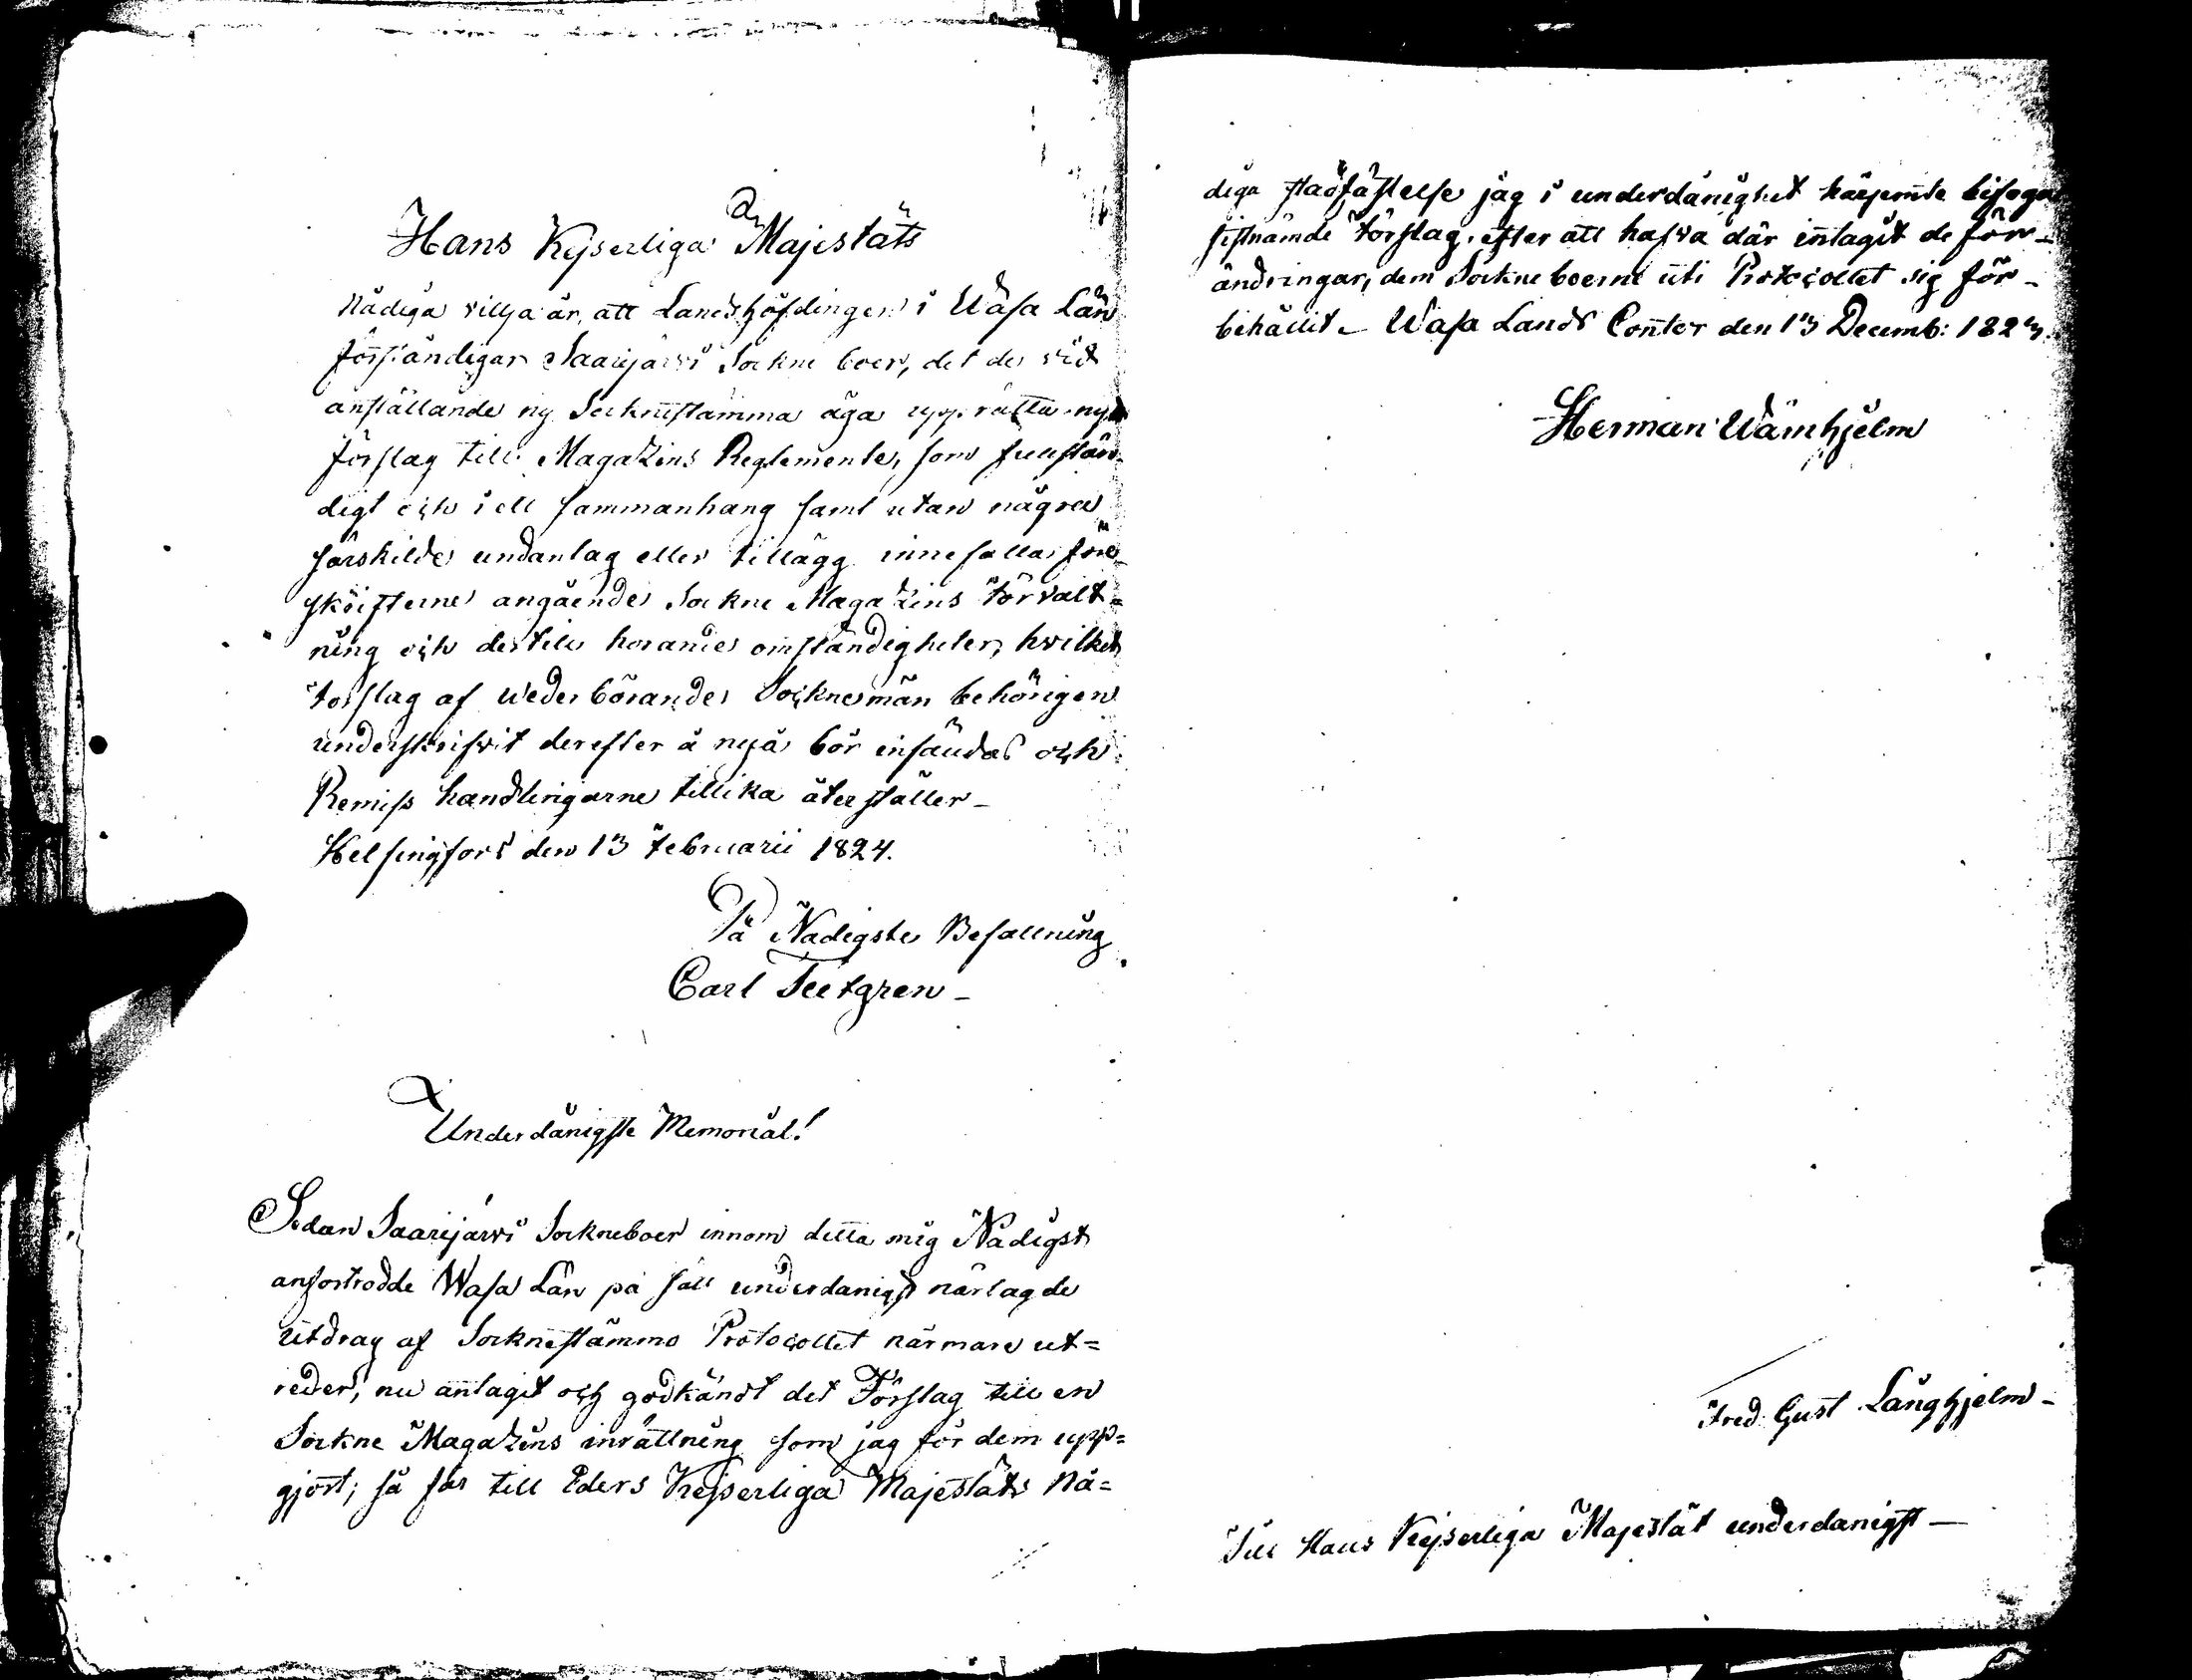 Hans Kejserliga Majestäts
Nådiga vilja är, att Landshöfdingen i Wasa Län
förständigar Saarijärvi Sockne boer, det de vid
anställande ny Socknestämma äga upprätta nytt
förslag till Magazins Reglemente, som fullstän-
digt och i ett sammanhang samt utan några
särskilde undantag eller tillägg innefattar före-
skrifterne angående Sockne Magazins förvalt-
ning och dertill hörande omständigheter, hvilket
förslag af wederbörande Socknemän behörigen
underskrifvit derefter å nyå bör insändas och
Remiss handlingarne tillika återställer_
Helsingfors den 13 Februarii 1824.
På Nådigste Befallning
Carl Feetgren_
Underdånigste Memorial!
Sedan Saarijärvi Sockneboer innom detta mig Nådigst
anförtrodde Wasa Län på sätt underdånigst närlagde
Utdrag af Socknestämmo Protocollet närmare ut=
reder, nu antagit och godkändt det Förslag till en
Sockne Magazins inrättning som jag för dem upp=
gjort; så får till Eders Kejserliga Majestäts Nå=
diga stadfästelse jag i underdånighet härjemte bifoga
sistnämde Förslag, efter att hafva där intagit de för-
ändringar, dem Sockneboerne uti Protocollet sig för-
behållit_ Wasa Lands Contor den 13 Decemb: 1823.
Herman Wärnhjelm
Fred: Gust Långhjelm_
Till Hans Kejserliga Majestät underdånigst_